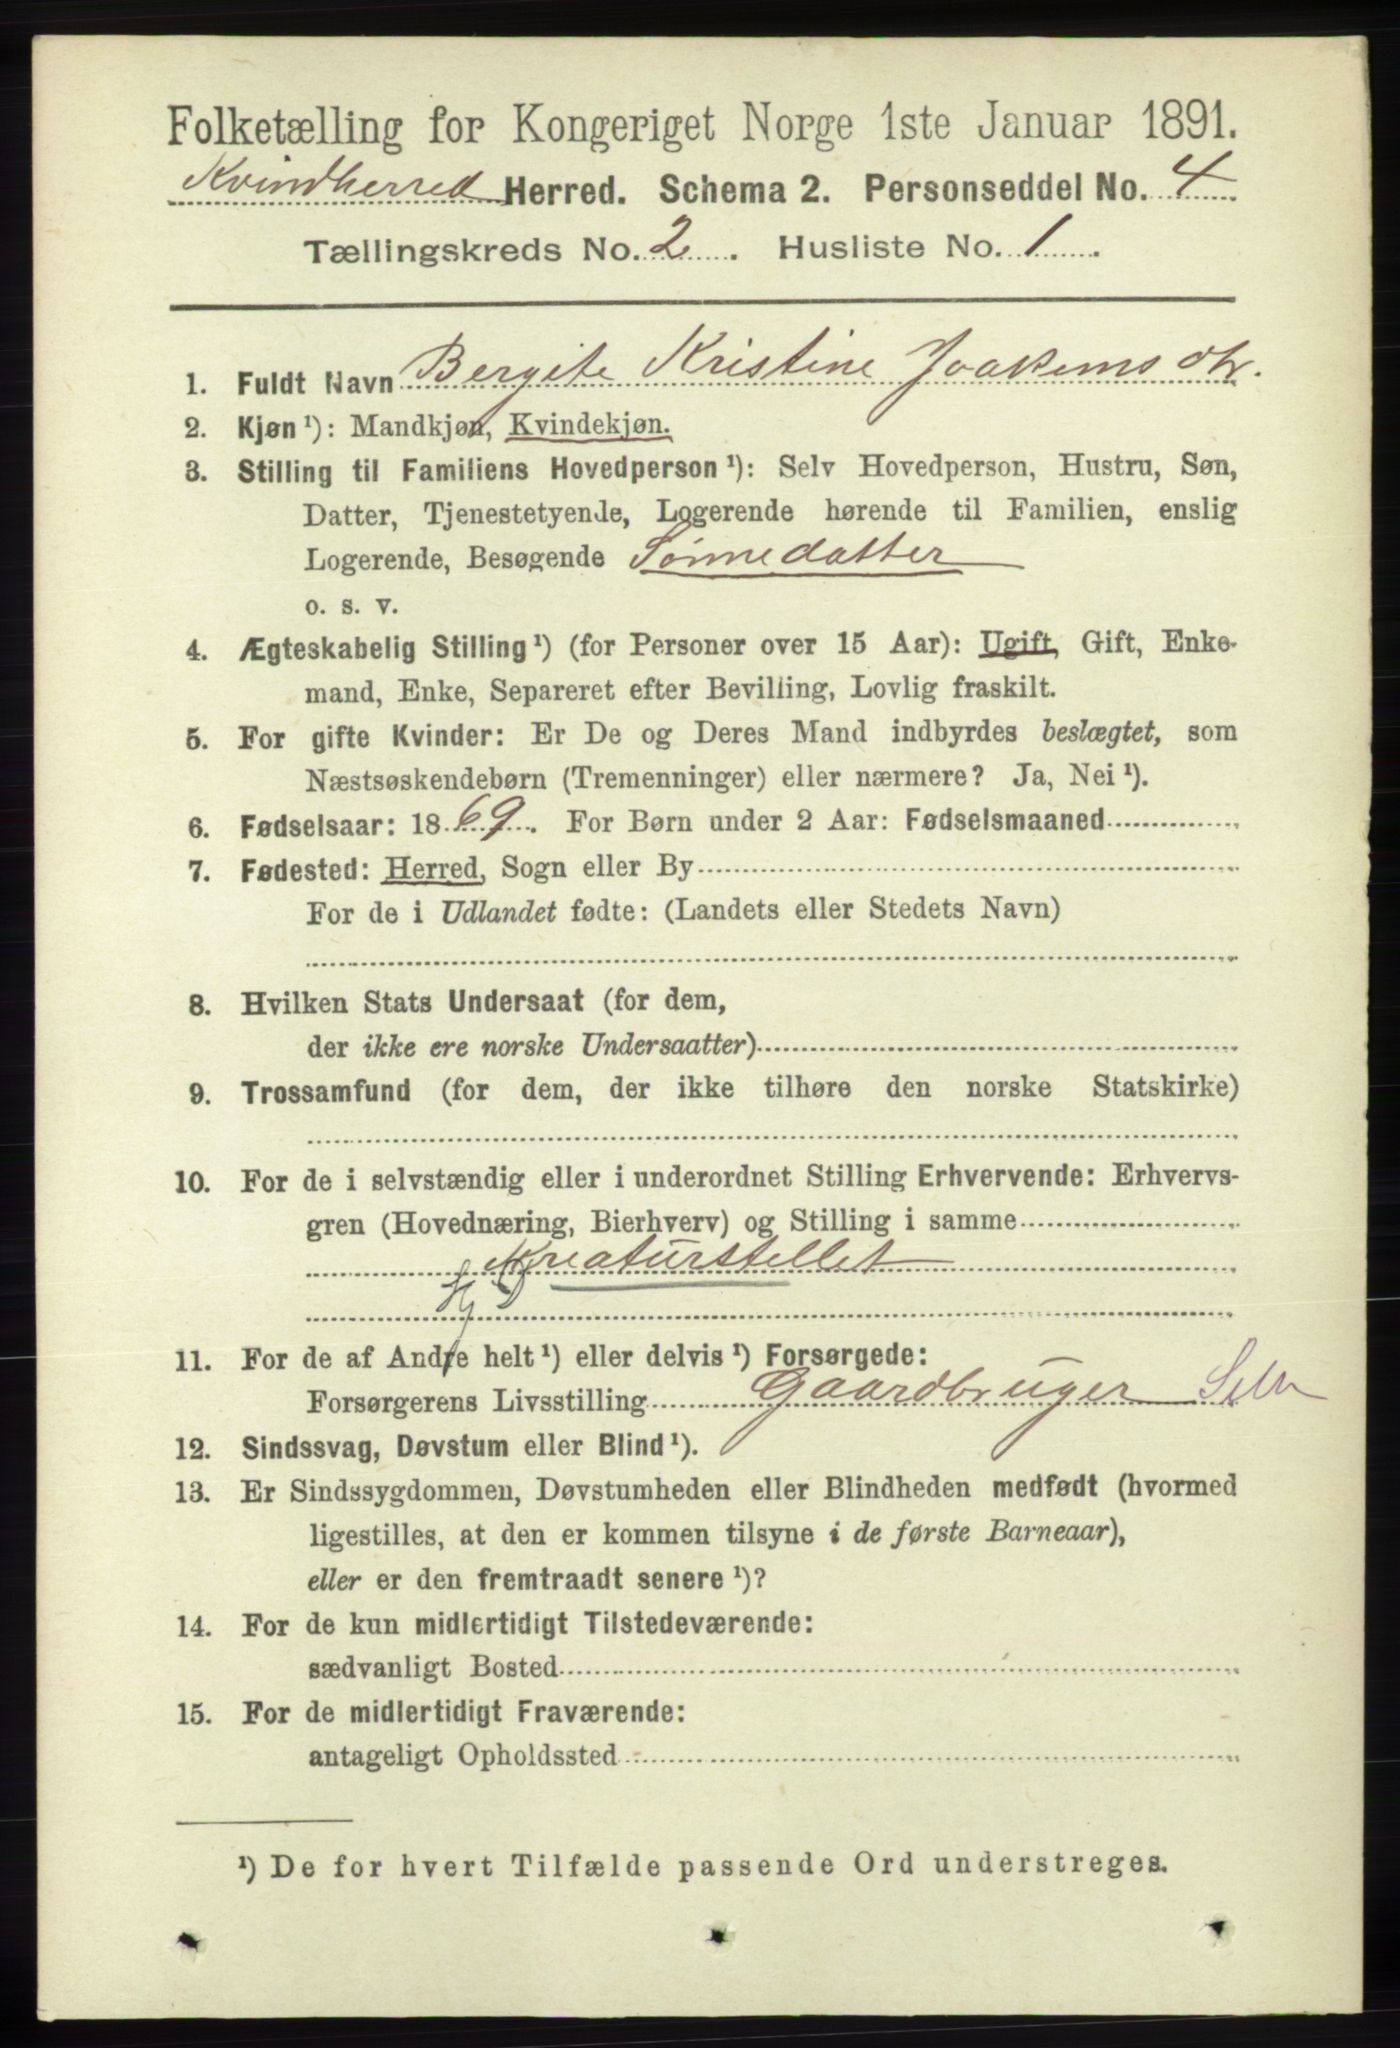 Folketælling for Kongeriget Norge 1ste Januar 1891.
Kvindherred Herred. Schema 2. Personseddel No. 4
Tællingskreds No. 2. Husliste No. 1.
1. Fuldt Navn Bergite Kristine Joakimsdtr.
2. Kjøn ¹): Mandkjøn, Kvindekjøn.
3. Stilling til Familiens Hovedperson ¹): Selv Hovedperson, Hustru, Søn,
Datter, Tjenestetyende, Logerende hørende til Familien, enslig
Logerende, Besøgende Sønnedatter
o. s. v.
4. Ægteskabelig Stilling ¹) (for Personer over 15 Aar): Ugift, Gift, Enke-
mand, Enke, Separeret efter Bevilling, Lovlig fraskilt.
5. For gifte Kvinder: Er De og Deres Mand indbyrdes beslægtet, som
Næstsøskendebørn (Tremenninger) eller nærmere? Ja, Nei ¹).
6. Fødselsaar: 1869. For Børn under 2 Aar: Fødselsmaaned
7. Fødested: Herred, Sogn eller By
For de i Udlandet fødte: (Landets eller Stedets Navn)
8. Hvilken Stats Undersaat (for dem,
der ikke ere norske Undersaatter)
9. Trossamfund (for dem, der ikke tilhøre den norske Statskirke)
10. For de i selvstændig eller i underordnet Stilling Erhvervende: Erhvervs-
gren (Hovednæring, Bierhverv) og Stilling i samme
Kreaturstellet
11. For de af Andre helt ¹) eller delvis ¹) Forsørgede:
Forsørgerens Livsstilling Gaardbruger Selv
12. Sindssvag, Døvstum eller Blind ¹).
13. Er Sindssygdommen, Døvstumheden eller Blindheden medfødt (hvormed
ligestilles, at den er kommen tilsyne i de første Barneaar),
eller er den fremtraadt senere ¹)?
14. For de kun midlertidigt Tilstedeværende:
sædvanligt Bosted
15. For de midlertidigt Fraværende:
antageligt Opholdssted
¹) De for hvert Tilfælde passende Ord understreges.